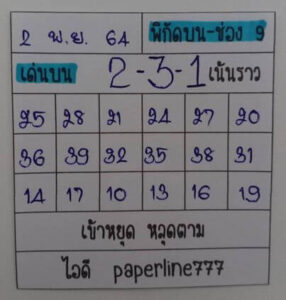 2 พ.ย. 64 พิกัดบน-ช่อง 9
เด่นบน 2-3-1 เน้นราว
25 28 21 24 27 20
36 39 32 35 38 31
14 17 10 13 16 19
เข้าหยุด หลุดตาม
ไอดี paperline777